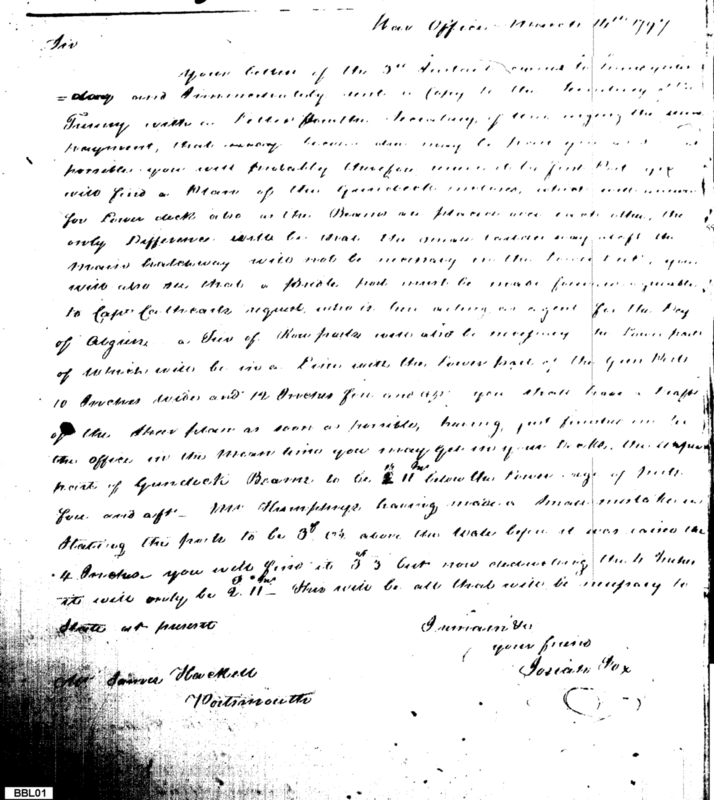 War Office March 14th 1797
Sir
Your letter of the 3rd Instant came to hand yester
= day and Immediately sent a Copy to the Secretary of the
Treasury with a Letter from the Secretary of War urging the
payment, that money may be
possible you will Probably therefore receive it by first Post you
will find a Plan of the Gundeck inclosed, which will answer
for Lower deck also as the Beams are placed over each other, the
only Difference will be that the small ladder way abaft the
Main hatchway will not be necessary in the Lower Deck, you
will also see that a Bridle port must be made forward agreeable
to Capt Cathcarts request, who is here acting as agent for the Dey
of Algiers a Tier of Row ports will also be necessary the Lower part
of Which will be in a Line with the Lower part of the Gun Ports
10 Inches wide and 12 Inches fore and aft you shall have a draft
of the Shear plan as soon as possible, having just finished in
the office in the mean time you may get in your Decks, the upper
part of Gundeck Beams to be 2 11 In below the Lower edge of Ports
fore and aft - Mr Humphrys having made a Small mistake in
Stating the ports to be above the Wale before it was raised the
4 Inches you will find it 3 3 but now deducting the 4 Inches
it will only be 2 11 In - This will be all that will be necessary to
State at present
I remain Sir
your friend
Josiah Fox
Mr James Hackett
Portsmouth
BBL01